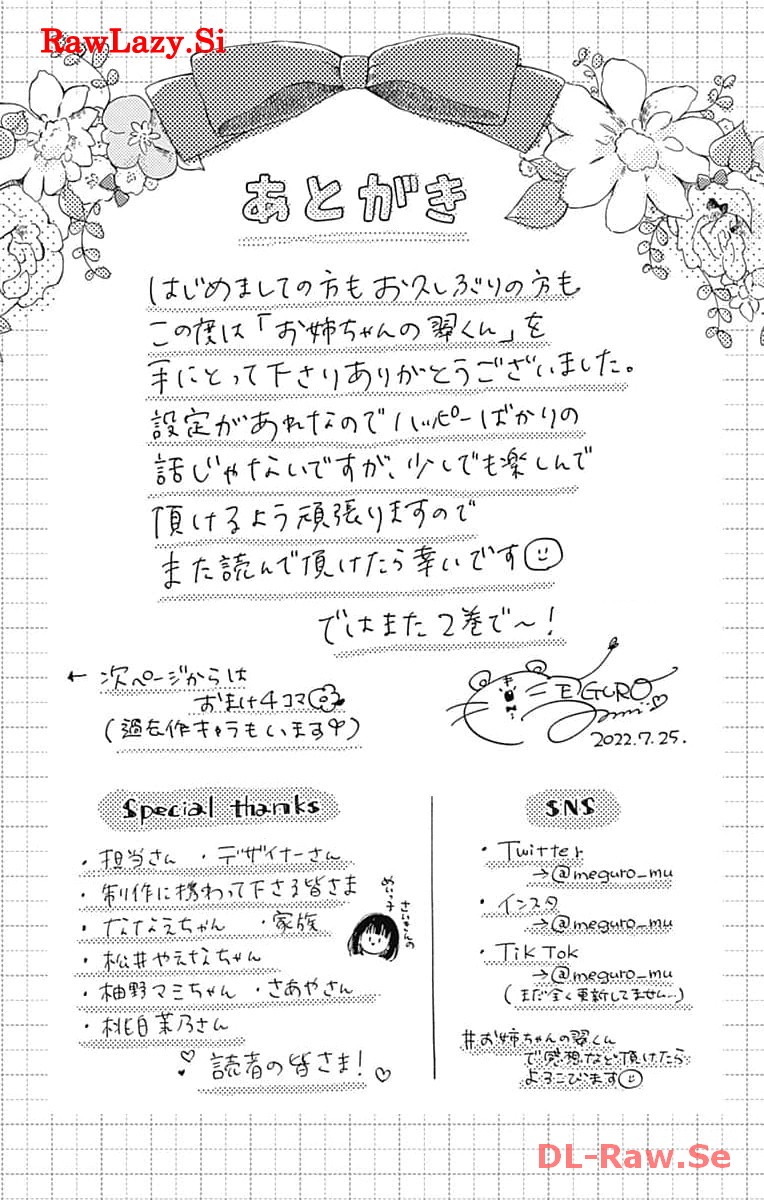 RawLazy.Si
あとがき
はじめましての方もお久しぶりの方も
この度は「お姉ちゃんの翠くん」を
手にとって下さりありがとうございました。
設定があれなのでハッピーばかりの
話じゃないですが、少しでも楽しんで
頂けるよう頑張りますので
また読んで頂けたら幸いです
ではまた2巻で〜!
← 次ページからは
おまけ4コマ
(過去作キャラもいます)
MEGURO
2022.7.25.
Special thanks
・担当さん ・デザイナーさん
・制作に携わって下さる皆さま
・ななえちゃん ・家族
・松井やえなちゃん
・柚野マミちゃん ・さあやさん
・桃白茉乃さん
♡ 読者の皆さま! ♡
さいきんの
めい子
SNS
・Twitter
→@meguro_mu
・インスタ
→@meguro_mu
・TikTok
→@meguro_mu
(まだ全く更新してません…)
#お姉ちゃんの翠くん
で感想など頂けたら
よろこびます
DL-Raw.Se